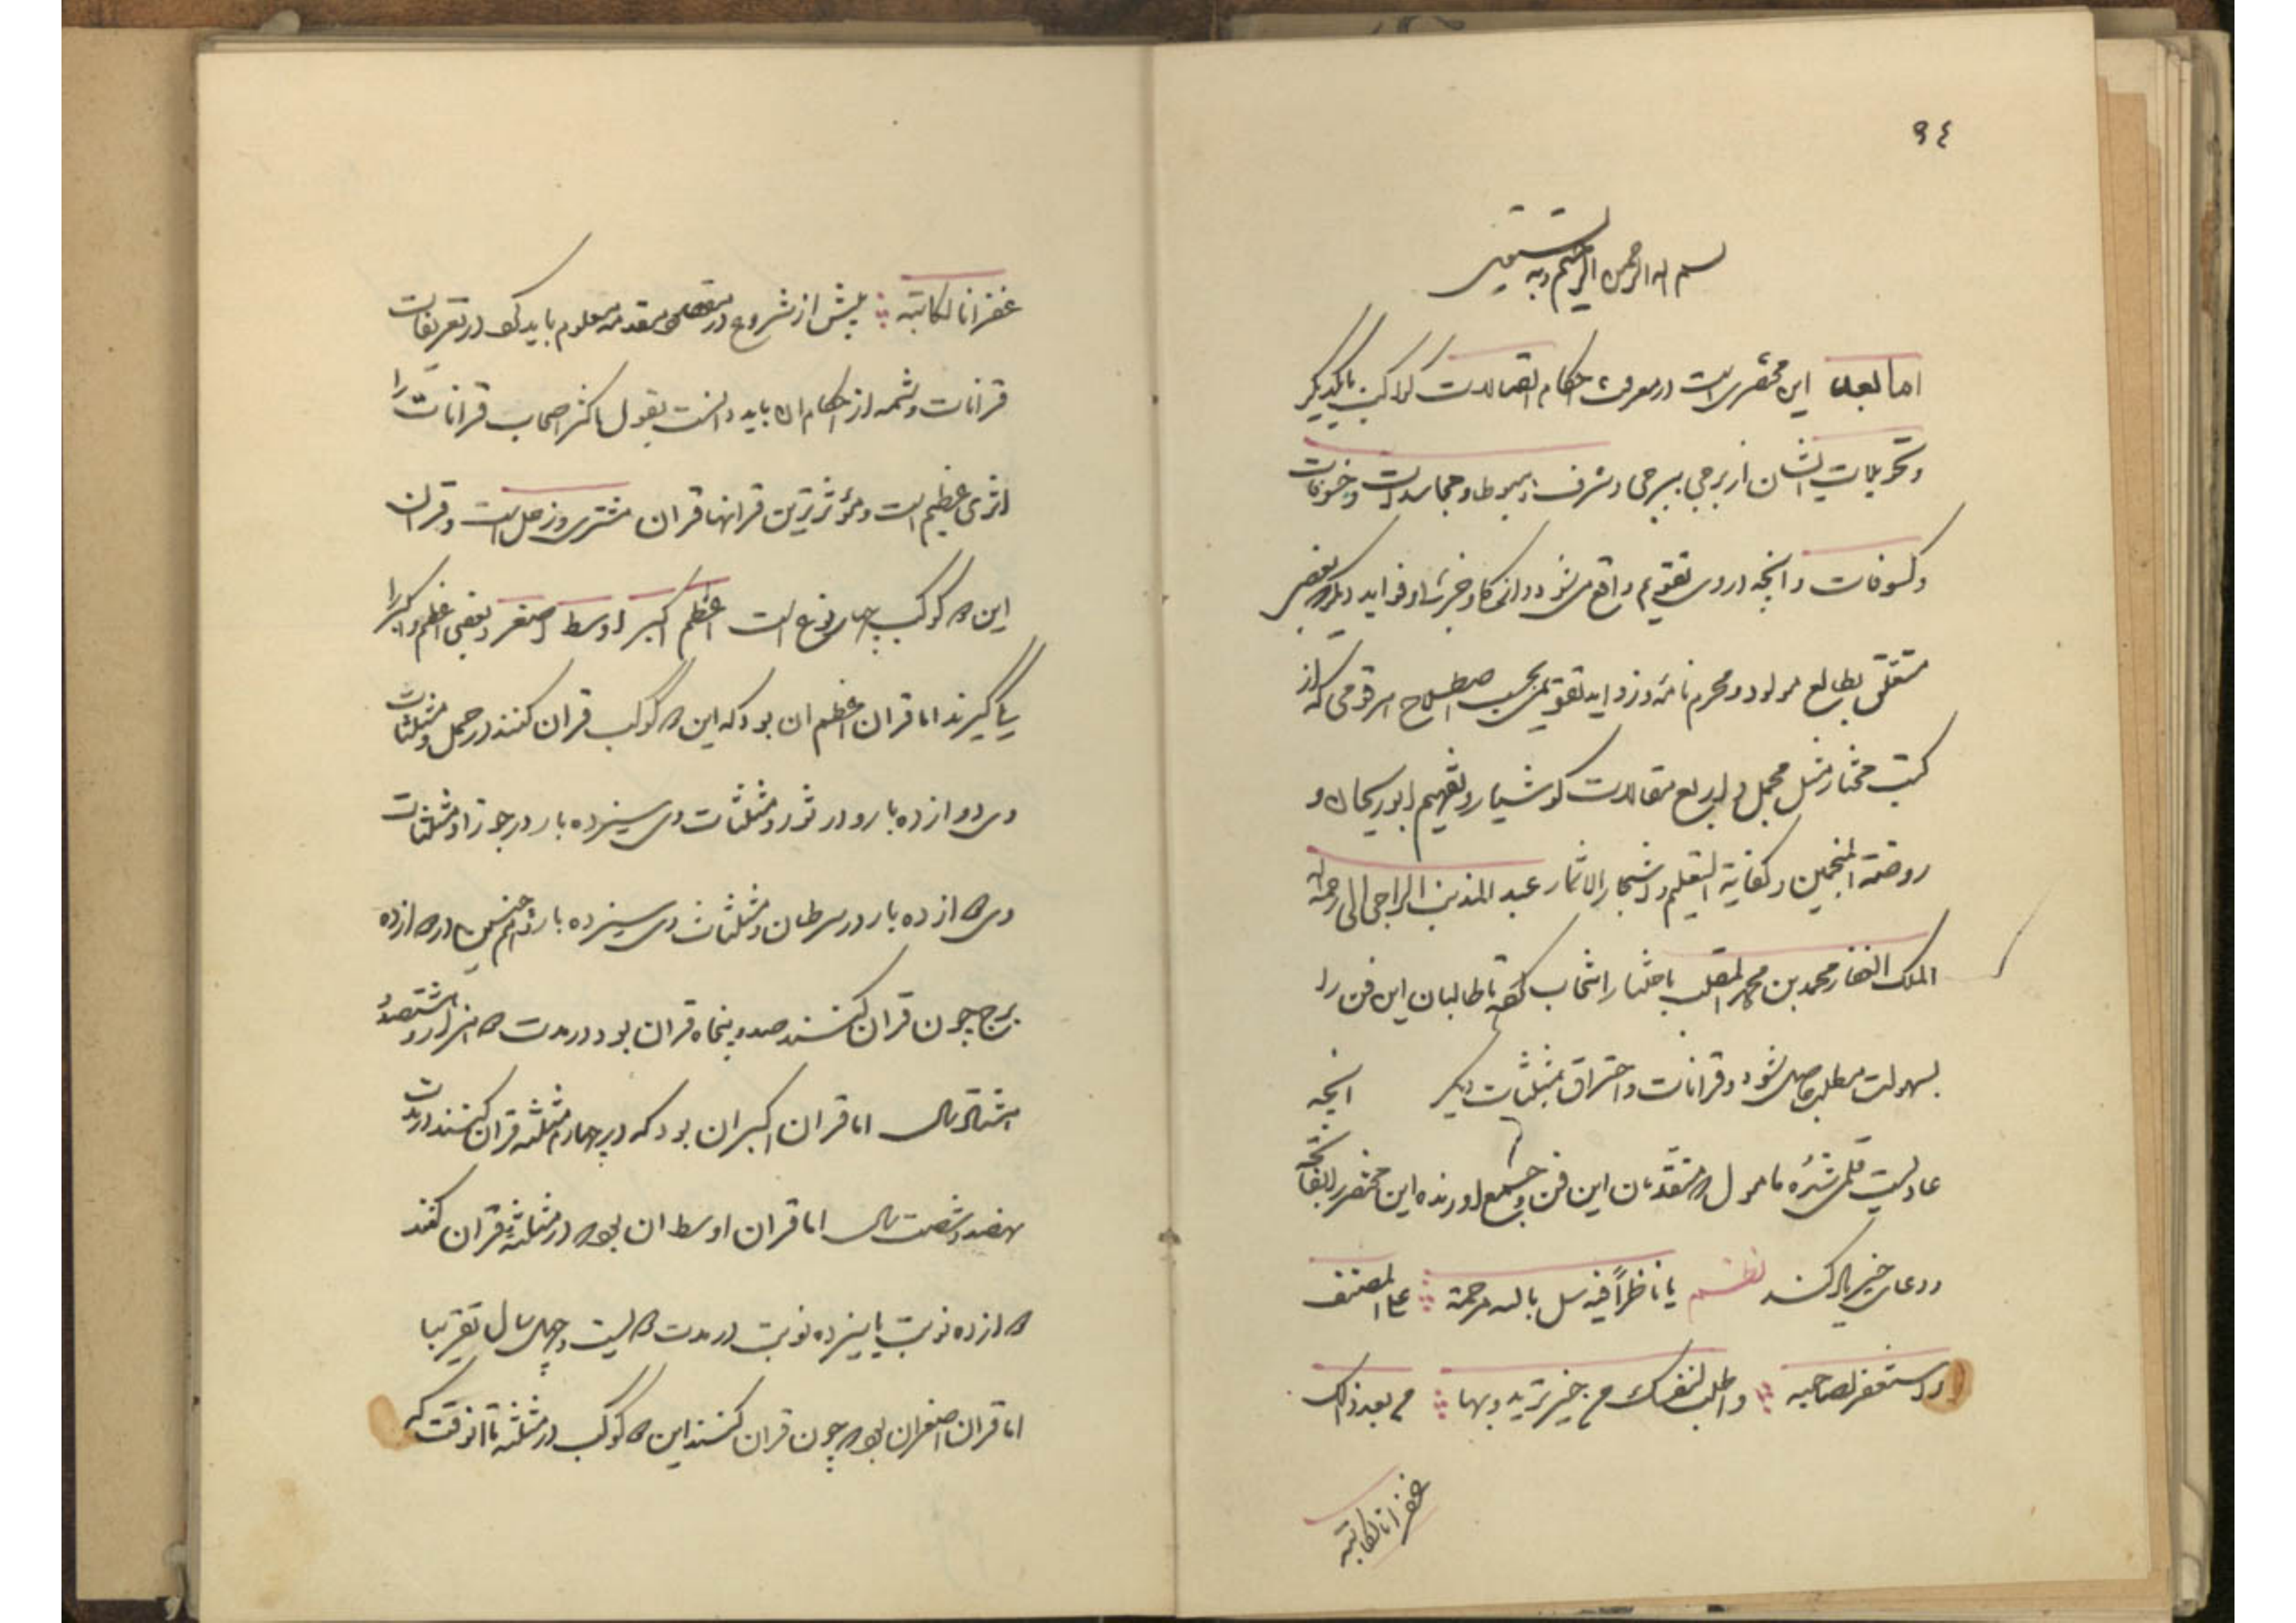 ٩٤
بسم الله الرحمن الرحیم وبه نستعین
اما بعد این مختصری است در معرفت احکام اتصالات کواکب بایکدیگر
و تحویلات ایشان از برجی ببرجی و شرف و هبوط و مجاسدات و خسوفات
و کسوفات و انچه از روی تقویم واقع می شود و فواید دیگر بعضی
متعلق بطالع مولود و محرم نامه و زواید تقویمی بحسب اصطلاح هر قومی که از
کتب مختار مثل مجمل و اربع مقالات کوشیار و تفهیم ابوریحان و
روضة المنجمین و کفایة التعلیم و اشجار الاثمار عبد المذنب الراجی الی رحمة الله
الملک الغفار محمد بن محمد باختیار انتخاب تا طالبان این فن را
بسهولت مطلب حاصل شود و قرانات و احتراق مثلثات دیگر انچه
عادلیت قلمی شده مامول متقدمان این فن جمع اورنده این مختصر را بفاتحه
و دعای خیر یاد کنند نظم یا ناظراً فیه سل بالله مرحمة علی المصنف
واستغفر لصاحبه واطلب لنفسک من خیر ترید بها من بعد ذلک
غفرانا لکاتبه
غفرانا لکاتبه پیش از شروع در مقدمه معلوم باید کرد در تعریفات
قرانات و شمه از احکام ان باید دانست بقول اکثر اصحاب قرانات را
اثری عظیم است و مؤثرترین قرانها قران مشتری و زحل است و قران
این دو کوکب چهار نوع است اعظم اکبر اوسط اصغر و بعضی اعظم و اکبر را
یکی گیرند اما قران اعظم ان بود که این دو کوکب قران کنند در حمل و مثلثات
وی دوازده بار و در ثور و مثلثات وی سیزده بار در جوزا و مثلثات
وی دوازده بار در سرطان و مثلثات وی سیزده بار همچنین در دوازده
برج چون قران کنند صد و پنجاه قران بود در مدت دو هزار و
سال اما قران اکبر ان بود که در چهارم مثلثه قران کنند در مدت
نهصد و شصت سال اما قران اوسط ان بود در مثلثه قران کنند
دوازده نوبت یا سیزده نوبت در مدت دویست و چهل سال تقریبا
اما قران اصغر ان بود چون قران کنند این دو کوکب در مثلثه تا انوقت که